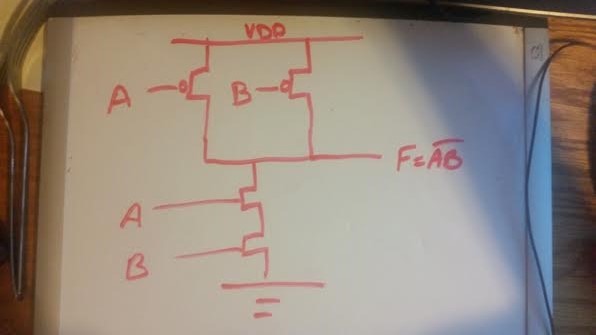 VDD
A B
F = A̅B̅
A
B